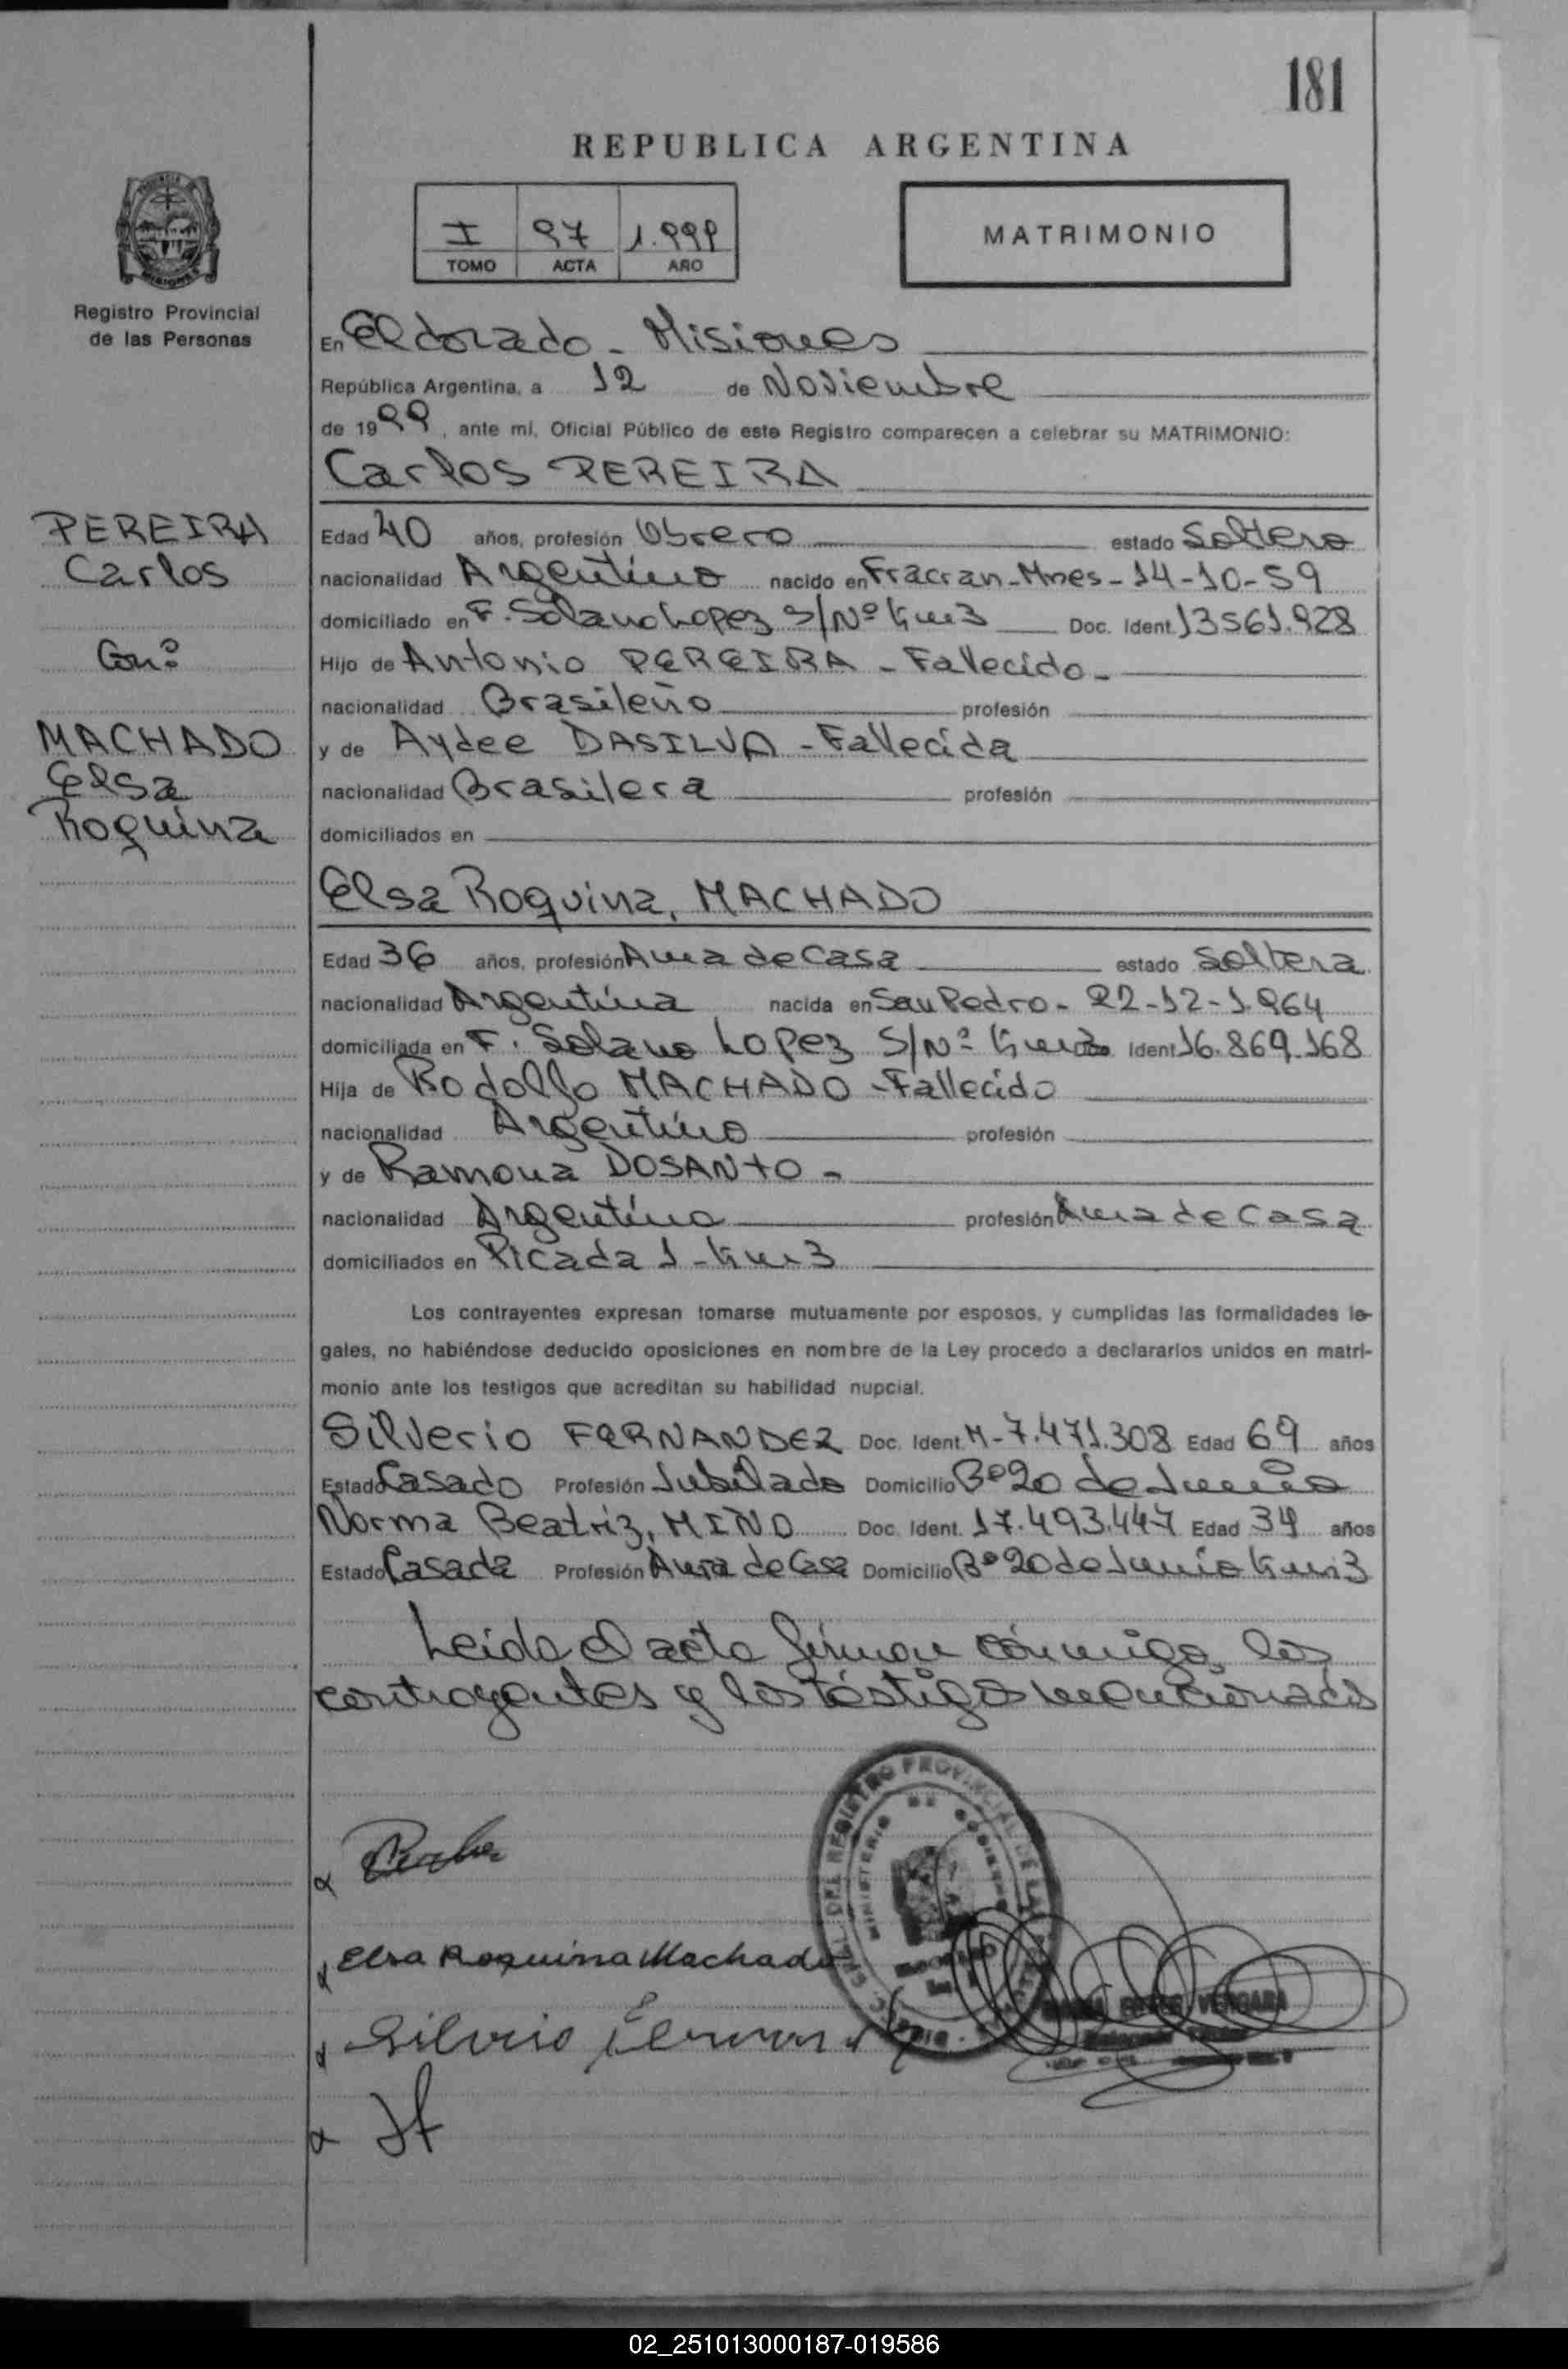 181
REPUBLICA ARGENTINA
I 97 1.999
TOMO ACTA AÑO
MATRIMONIO
Registro Provincial
de las Personas
En Eldorado - Misiones
República Argentina, a 12 de Noviembre
de 1999, ante mí, Oficial Público de este Registro comparecen a celebrar su MATRIMONIO:
Carlos PEREIRA
PEREIRA
Carlos
Con:
MACHADO
Elsa
Roquina
Edad 40 años, profesión Obrero estado Soltero
nacionalidad Argentino nacido en Fracran-Mnes-14-10-59
domiciliado en F. Solano Lopez S/Nº Km 3 Doc. Ident. 13561.928
Hijo de Antonio PEREIRA - Fallecido -
nacionalidad Brasileño profesión
y de Aydee DASILVA - Fallecida
nacionalidad Brasilera profesión
domiciliados en
Elsa Roquina, MACHADO
Edad 36 años, profesión Ama de Casa estado Soltera
nacionalidad Argentina nacida en San Pedro - 22-12-1.964
domiciliada en F. Solano Lopez S/Nº Km 3 Ident. 16.869.168
Hija de Rodolfo MACHADO - Fallecido
nacionalidad Argentino profesión
y de Ramona DOSANTO -
nacionalidad Argentina profesión Ama de Casa
domiciliados en Picada 1 - Km 3
Los contrayentes expresan tomarse mutuamente por esposos, y cumplidas las formalidades le-
gales, no habiéndose deducido oposiciones en nombre de la Ley procedo a declararlos unidos en matri-
monio ante los testigos que acreditan su habilidad nupcial.
Silverio FERNANDEZ Doc. Ident. M-7.471.308 Edad 69 años
Estado Casado Profesión Jubilado Domicilio Bº 20 de Junio
Norma Beatriz, MIÑO Doc. Ident. 17.493.447 Edad 34 años
Estado Casada Profesión Ama de Casa Domicilio Bº 20 de Junio Km 3
Leida el acta firman conmigo, los
contrayentes y los testigos mencionados
DEL REGISTRO PROVINCIAL DE LAS
MINISTERIO DE GOBIERNO
Elsa Roquina Machado
Silverio
VERGARA
02_251013000187-019586